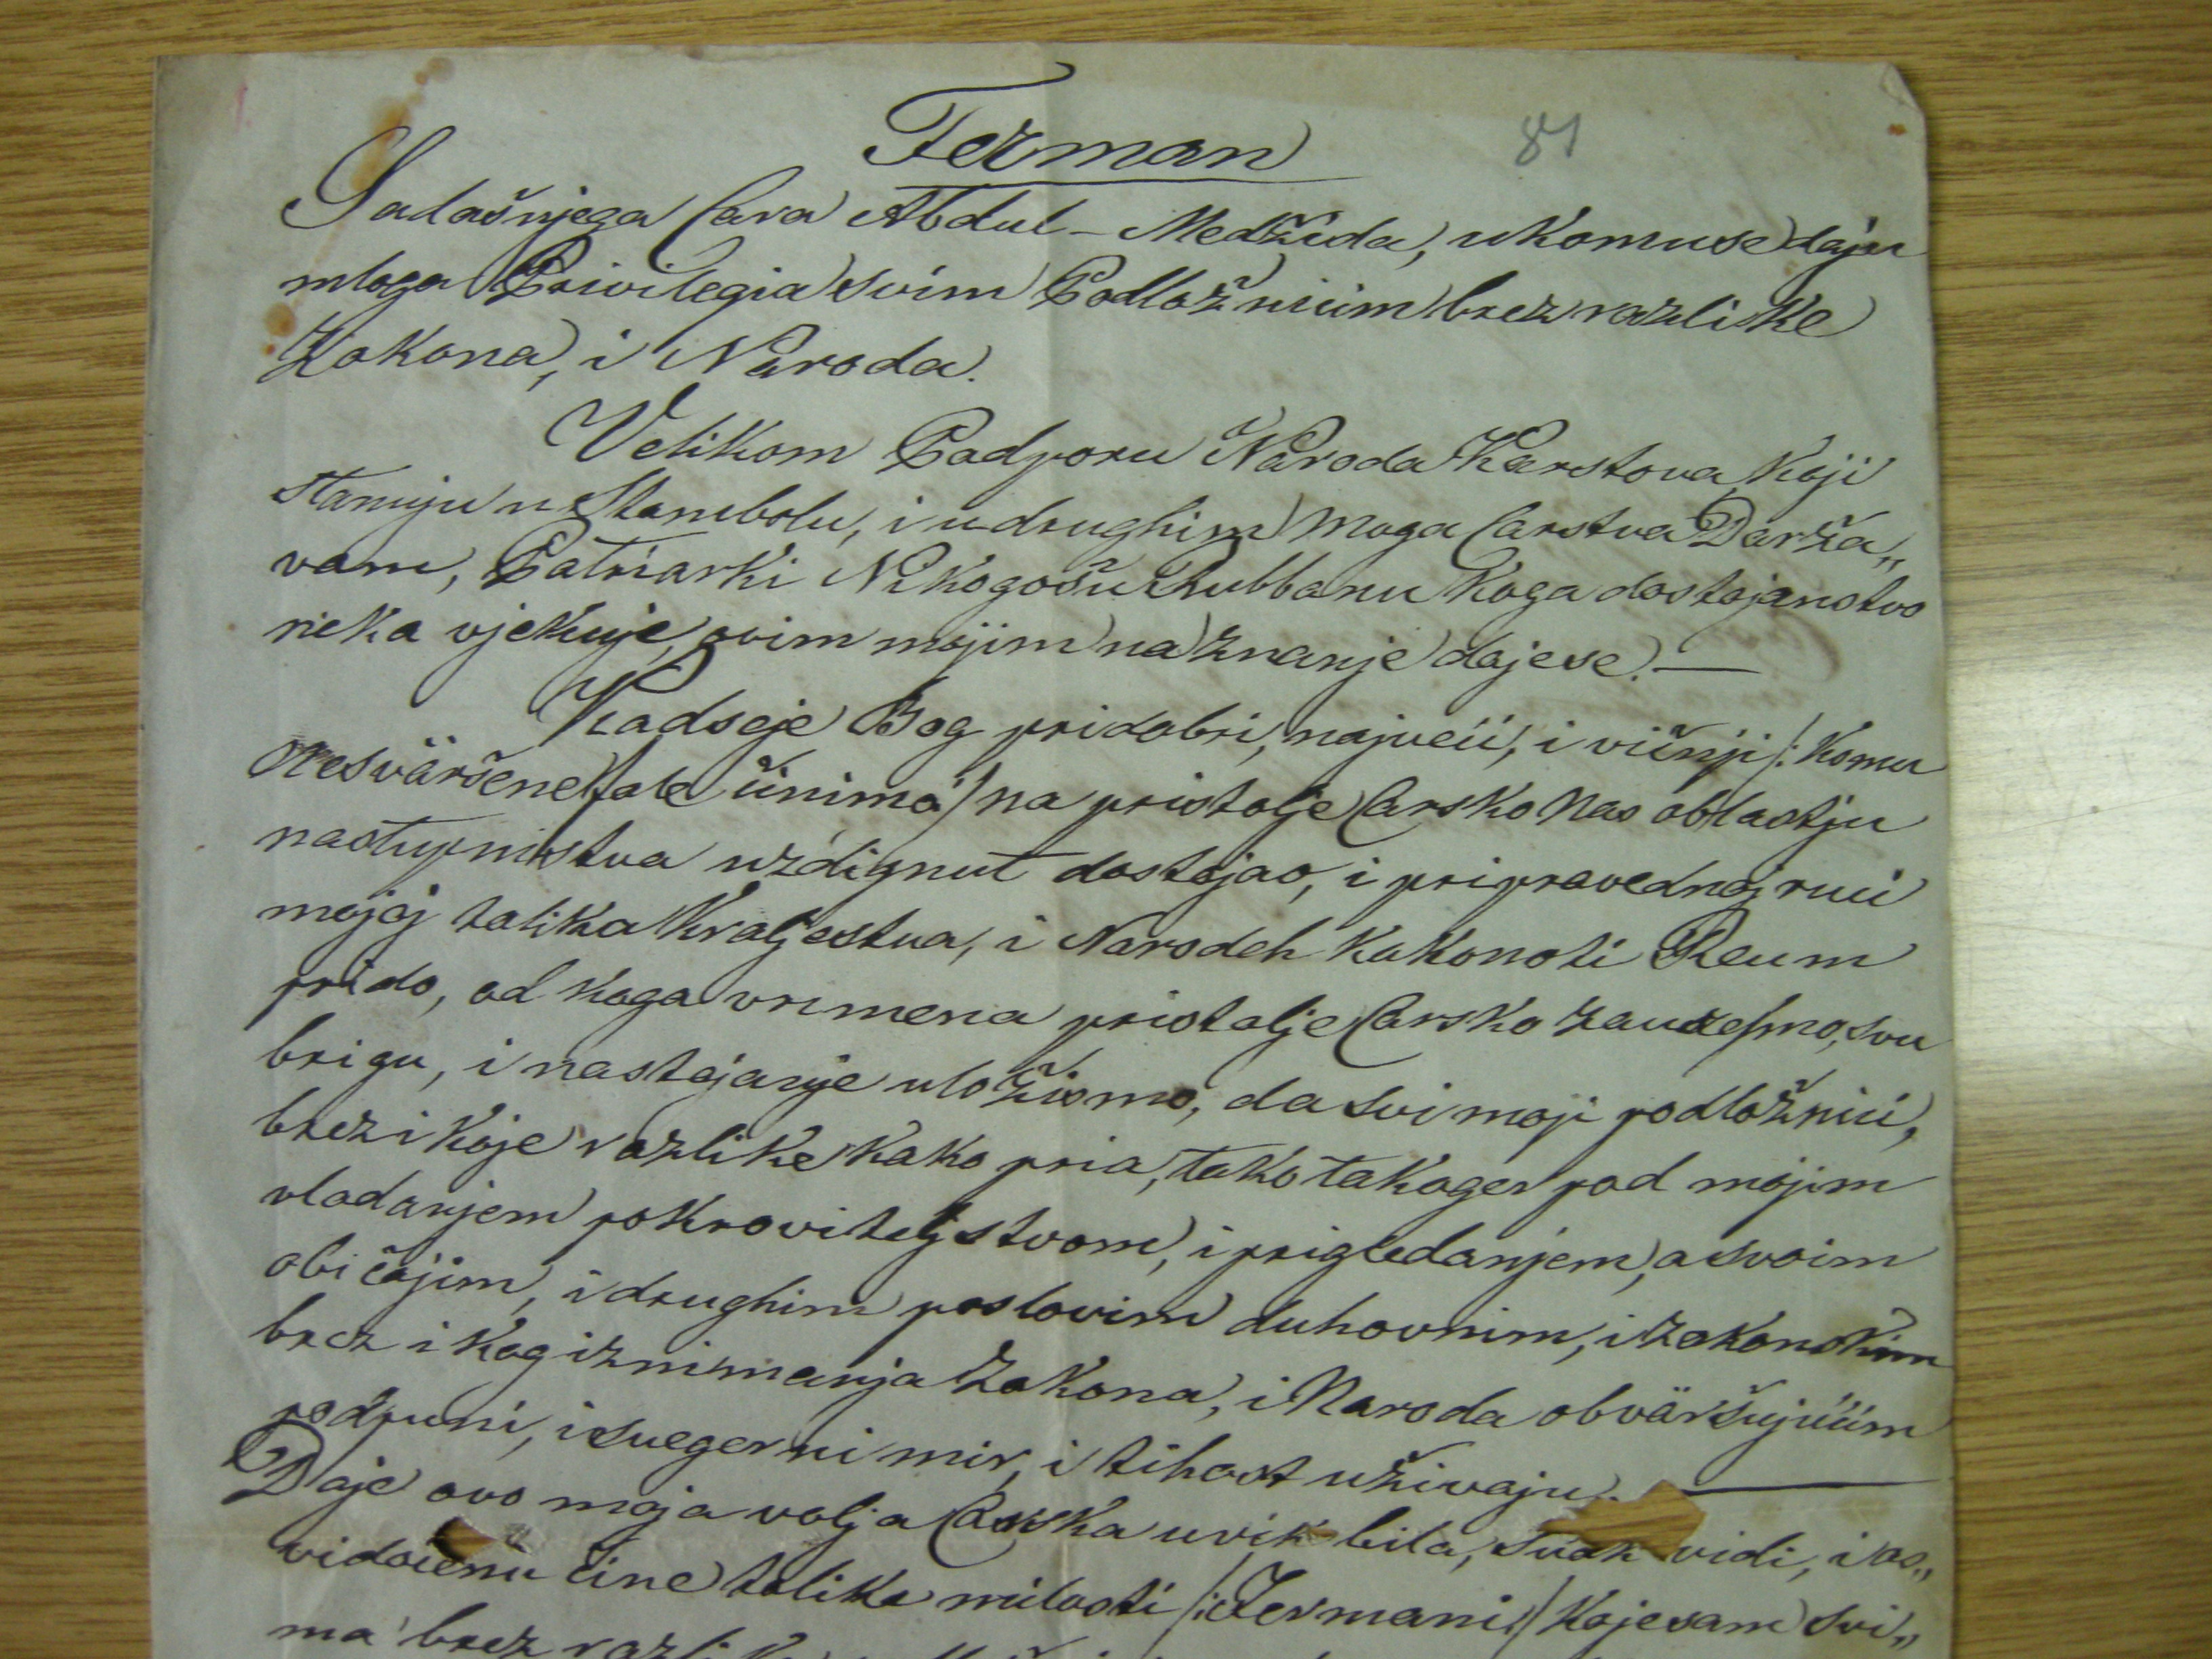 Ferman
81
Sadašnjega Cara Abdul-Medžida, ukomuse daju
mloga Privilegia svim Podložnicim brez razlike
Zakona, i Naroda.
Velikom Podporu Naroda Karstova, koji
stanuju u Stambolu, i u drughim moga Carstva Darža„
vam, Patriarki Nikogošu Rubbanu koga dostojanstvo
neka vjekuje, ovim mojim na znanje dajese.—
Kadseje Bog pridobri, najveći, i višnji /: komu
nesvaršene fale činimo :/ na pristolje Carsko Nas oblastju
nastupnistva uzdignut dostojao, i pripravednoj ruci
mojoj tolika kraljestva, i Narodeh kakonoti Reum
prido, od koga vrimena pristolje Carsko zauzesmo, svu
brigu, i nastojanje uložismo, da svi moji podložnici,
brez i koje razlike kako pria, tako takoger pod mojim
vladanjem pokroviteljstvom, i prigledanjem, a svoim
običajim, i drughim poslovim duhovnim, i zakonskim
brez i kog iznimanja Zakona, i Naroda obvaršujućim
podpuni, i svegerni mir, i tihost uživaju.—
Daje ovo moja volja Carska uvik bila, svak vidi, i oo„
vidočenu čine tolike milosti /: Fermani :/ koje sam svi„
ma brez